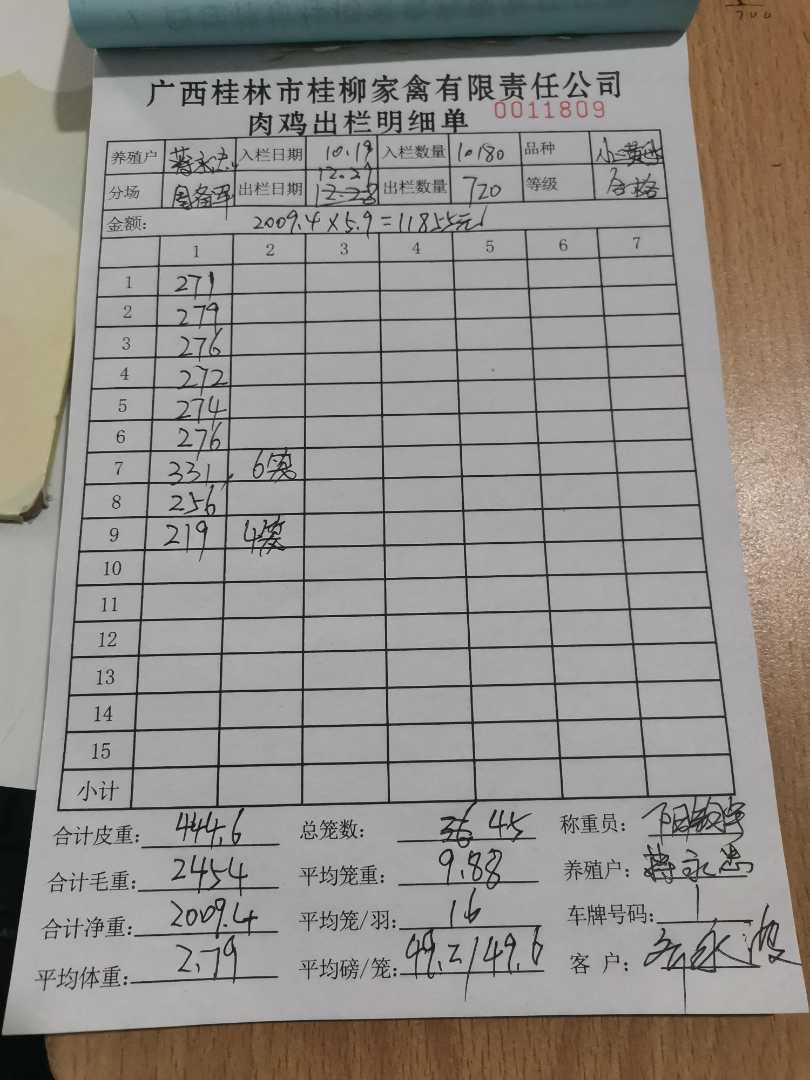 广西桂林市桂柳家禽有限责任公司
肉鸡出栏明细单 0011809
养殖户 蒋永忠 入栏日期 10.19 入栏数量 10180 品种
12.29
分场 出栏日期 12.28 出栏数量 720 等级 合格
金额: 2009.4×5.9=11855元
1 2 3 4 5 6 7
1 271
2 279
3 276
4 272
5 274
6 276
7 331, 6笼
8 256
9 219 4笼
10
11
12
13
14
15
小计
合计皮重: 444.6 总笼数: 36 45 称重员:
合计毛重: 2454 平均笼重: 9.88 养殖户: 蒋永忠
合计净重: 2009.4 平均笼/羽: 16 车牌号码: 1
平均体重: 2.79 平均磅/笼: 49.2/49.6 客户: 永波